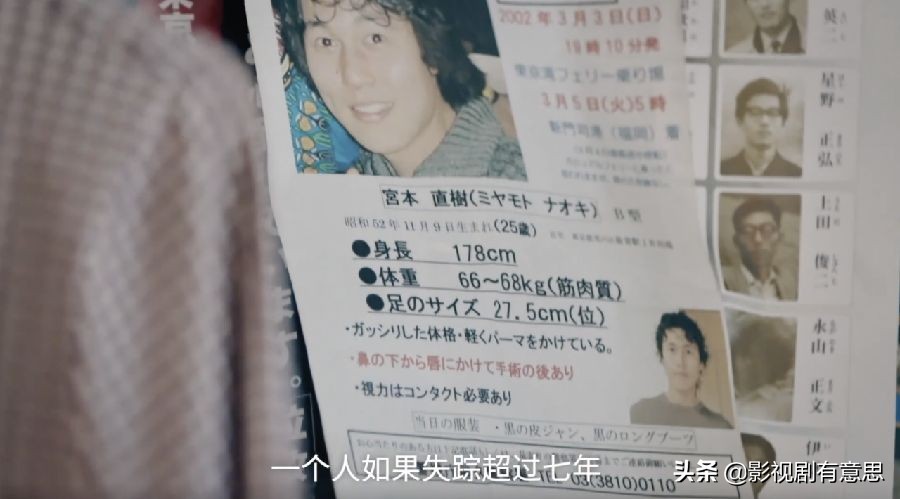 2002年3月3日(日)
19時10分発
東京湾フェリー乗り場
3月5日(火)5時
新門司港(福岡)着
宮本 直樹(ミヤモト ナオキ) B型
昭和52年11月9日生まれ(25歳)
●身長 178cm
●体重 66～68kg(筋肉質)
●足のサイズ 27.5cm(位)
・ガッシリした体格・軽くパーマをかけている。
・鼻の下から唇にかけて手術の後あり
・視力はコンタクト必要あり
当日の服装 ・黒の皮ジャン、黒のロングブーツ
03(3810)0110
英二
星野 正弘
上田 俊二
永山 正文
伊
一个人如果失踪超过七年
头条 @影视剧有意思